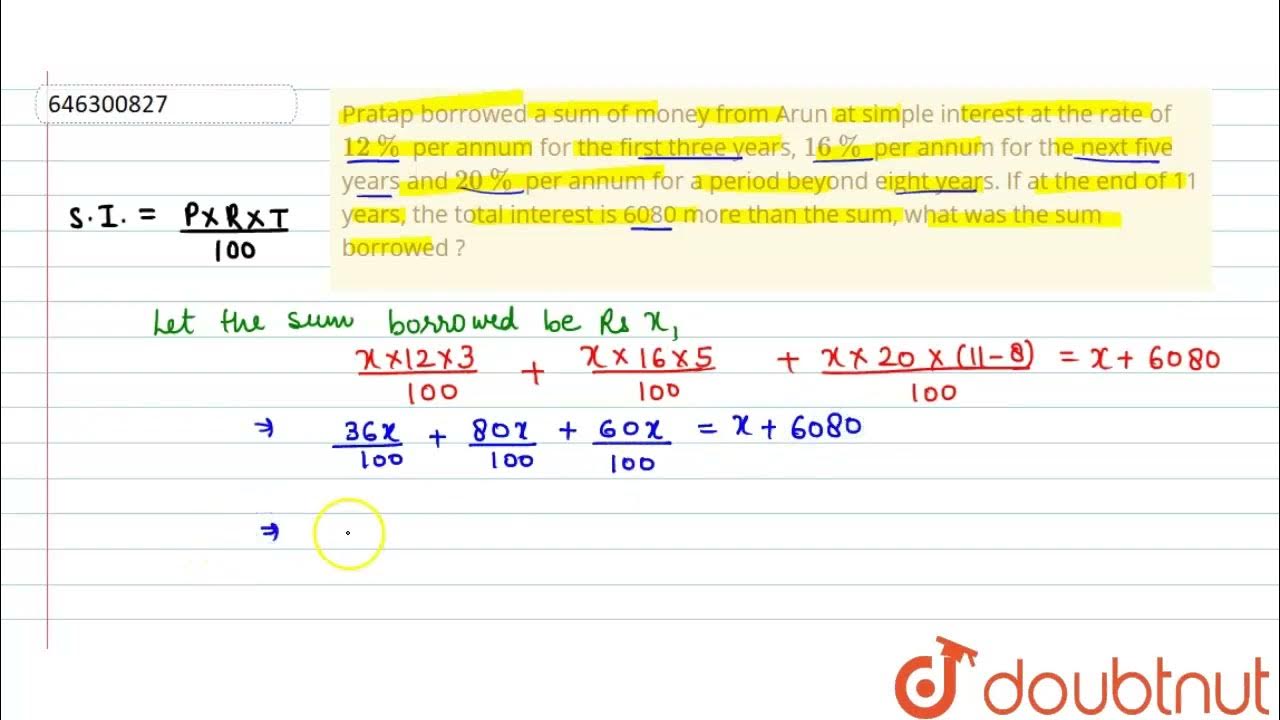 646300827
Pratap borrowed a sum of money from Arun at simple interest at the rate of
12 % per annum for the first three years, 16 % per annum for the next five
years and 20 % per annum for a period beyond eight years. If at the end of 11
years, the total interest is 6080 more than the sum, what was the sum
borrowed ?
S.I. = P×R×T / 100
Let the sum borrowed be Rs x,
x×12×3 / 100 + x×16×5 / 100 + x×20×(11-8) / 100 = x + 6080
⇒ 36x / 100 + 80x / 100 + 60x / 100 = x + 6080
⇒
doubtnut